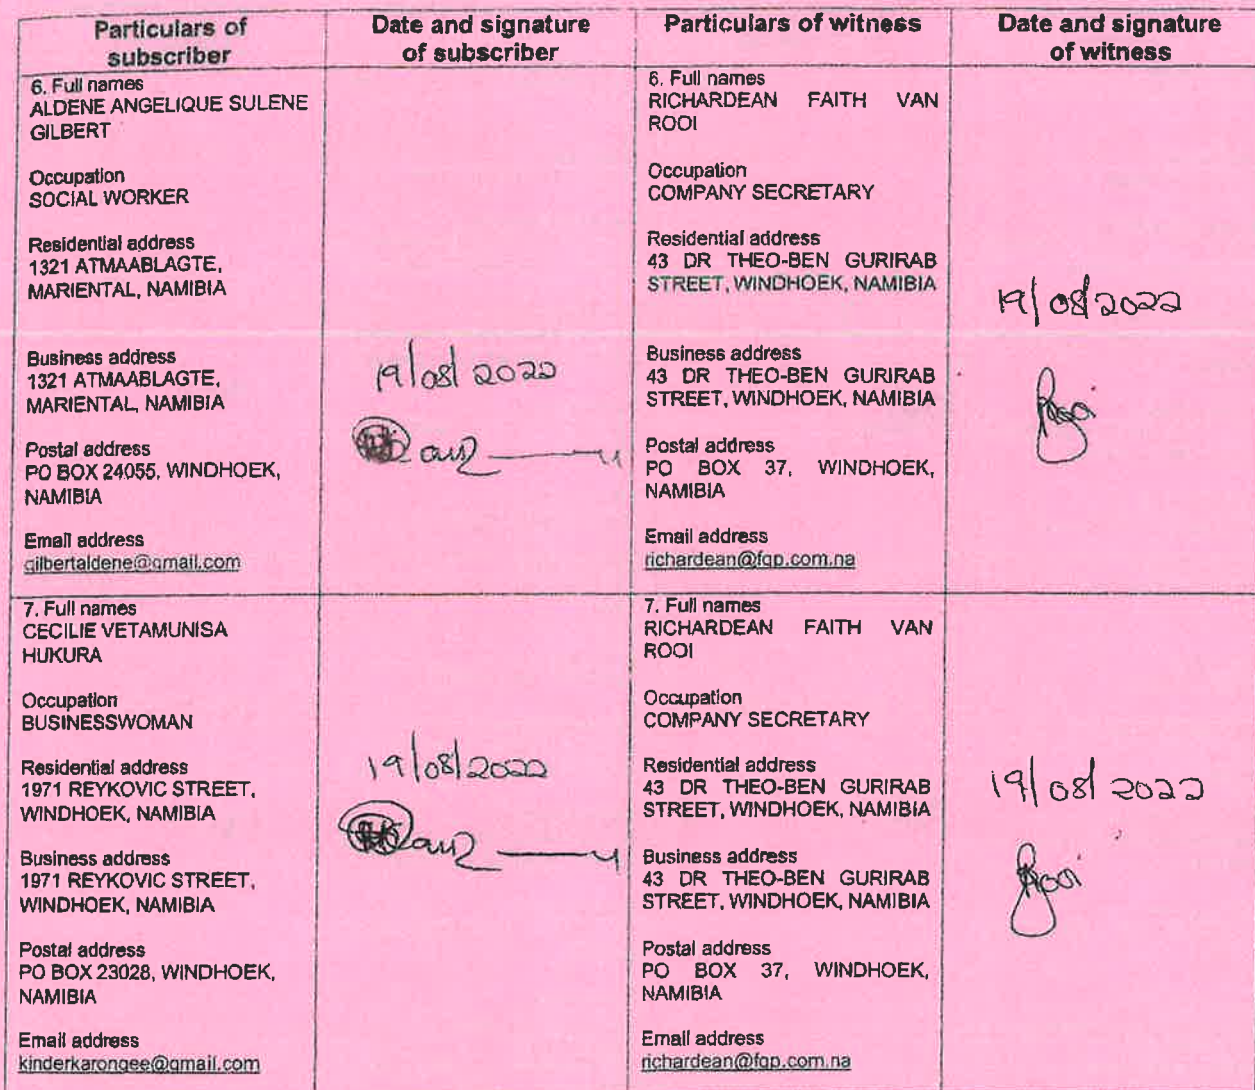 Particulars of
subscriber
Date and signature
of subscriber
Particulars of witness
Date and signature
of witness
6. Full names
ALDENE ANGELIQUE SULENE
GILBERT
Occupation
SOCIAL WORKER
Residential address
1321 ATMAABLAGTE,
MARIENTAL, NAMIBIA
Business address
1321 ATMAABLAGTE,
MARIENTAL, NAMIBIA
Postal address
PO BOX 24055, WINDHOEK,
NAMIBIA
Email address
gilbertaldene@gmail.com
19/08/2022
6. Full names
RICHARDEAN FAITH VAN
ROOI
Occupation
COMPANY SECRETARY
Residential address
43 DR THEO-BEN GURIRAB
STREET, WINDHOEK, NAMIBIA
Business address
43 DR THEO-BEN GURIRAB
STREET, WINDHOEK, NAMIBIA
Postal address
PO BOX 37, WINDHOEK,
NAMIBIA
Email address
richardean@fgp.com.na
19/08/2022
Rooi
7. Full names
CECILIE VETAMUNISA
HUKURA
Occupation
BUSINESSWOMAN
Residential address
1971 REYKOVIC STREET,
WINDHOEK, NAMIBIA
Business address
1971 REYKOVIC STREET,
WINDHOEK, NAMIBIA
Postal address
PO BOX 23028, WINDHOEK,
NAMIBIA
Email address
kinderkarongee@gmail.com
19/08/2022
7. Full names
RICHARDEAN FAITH VAN
ROOI
Occupation
COMPANY SECRETARY
Residential address
43 DR THEO-BEN GURIRAB
STREET, WINDHOEK, NAMIBIA
Business address
43 DR THEO-BEN GURIRAB
STREET, WINDHOEK, NAMIBIA
Postal address
PO BOX 37, WINDHOEK,
NAMIBIA
Email address
richardean@fgp.com.na
19/08/2022
Rooi